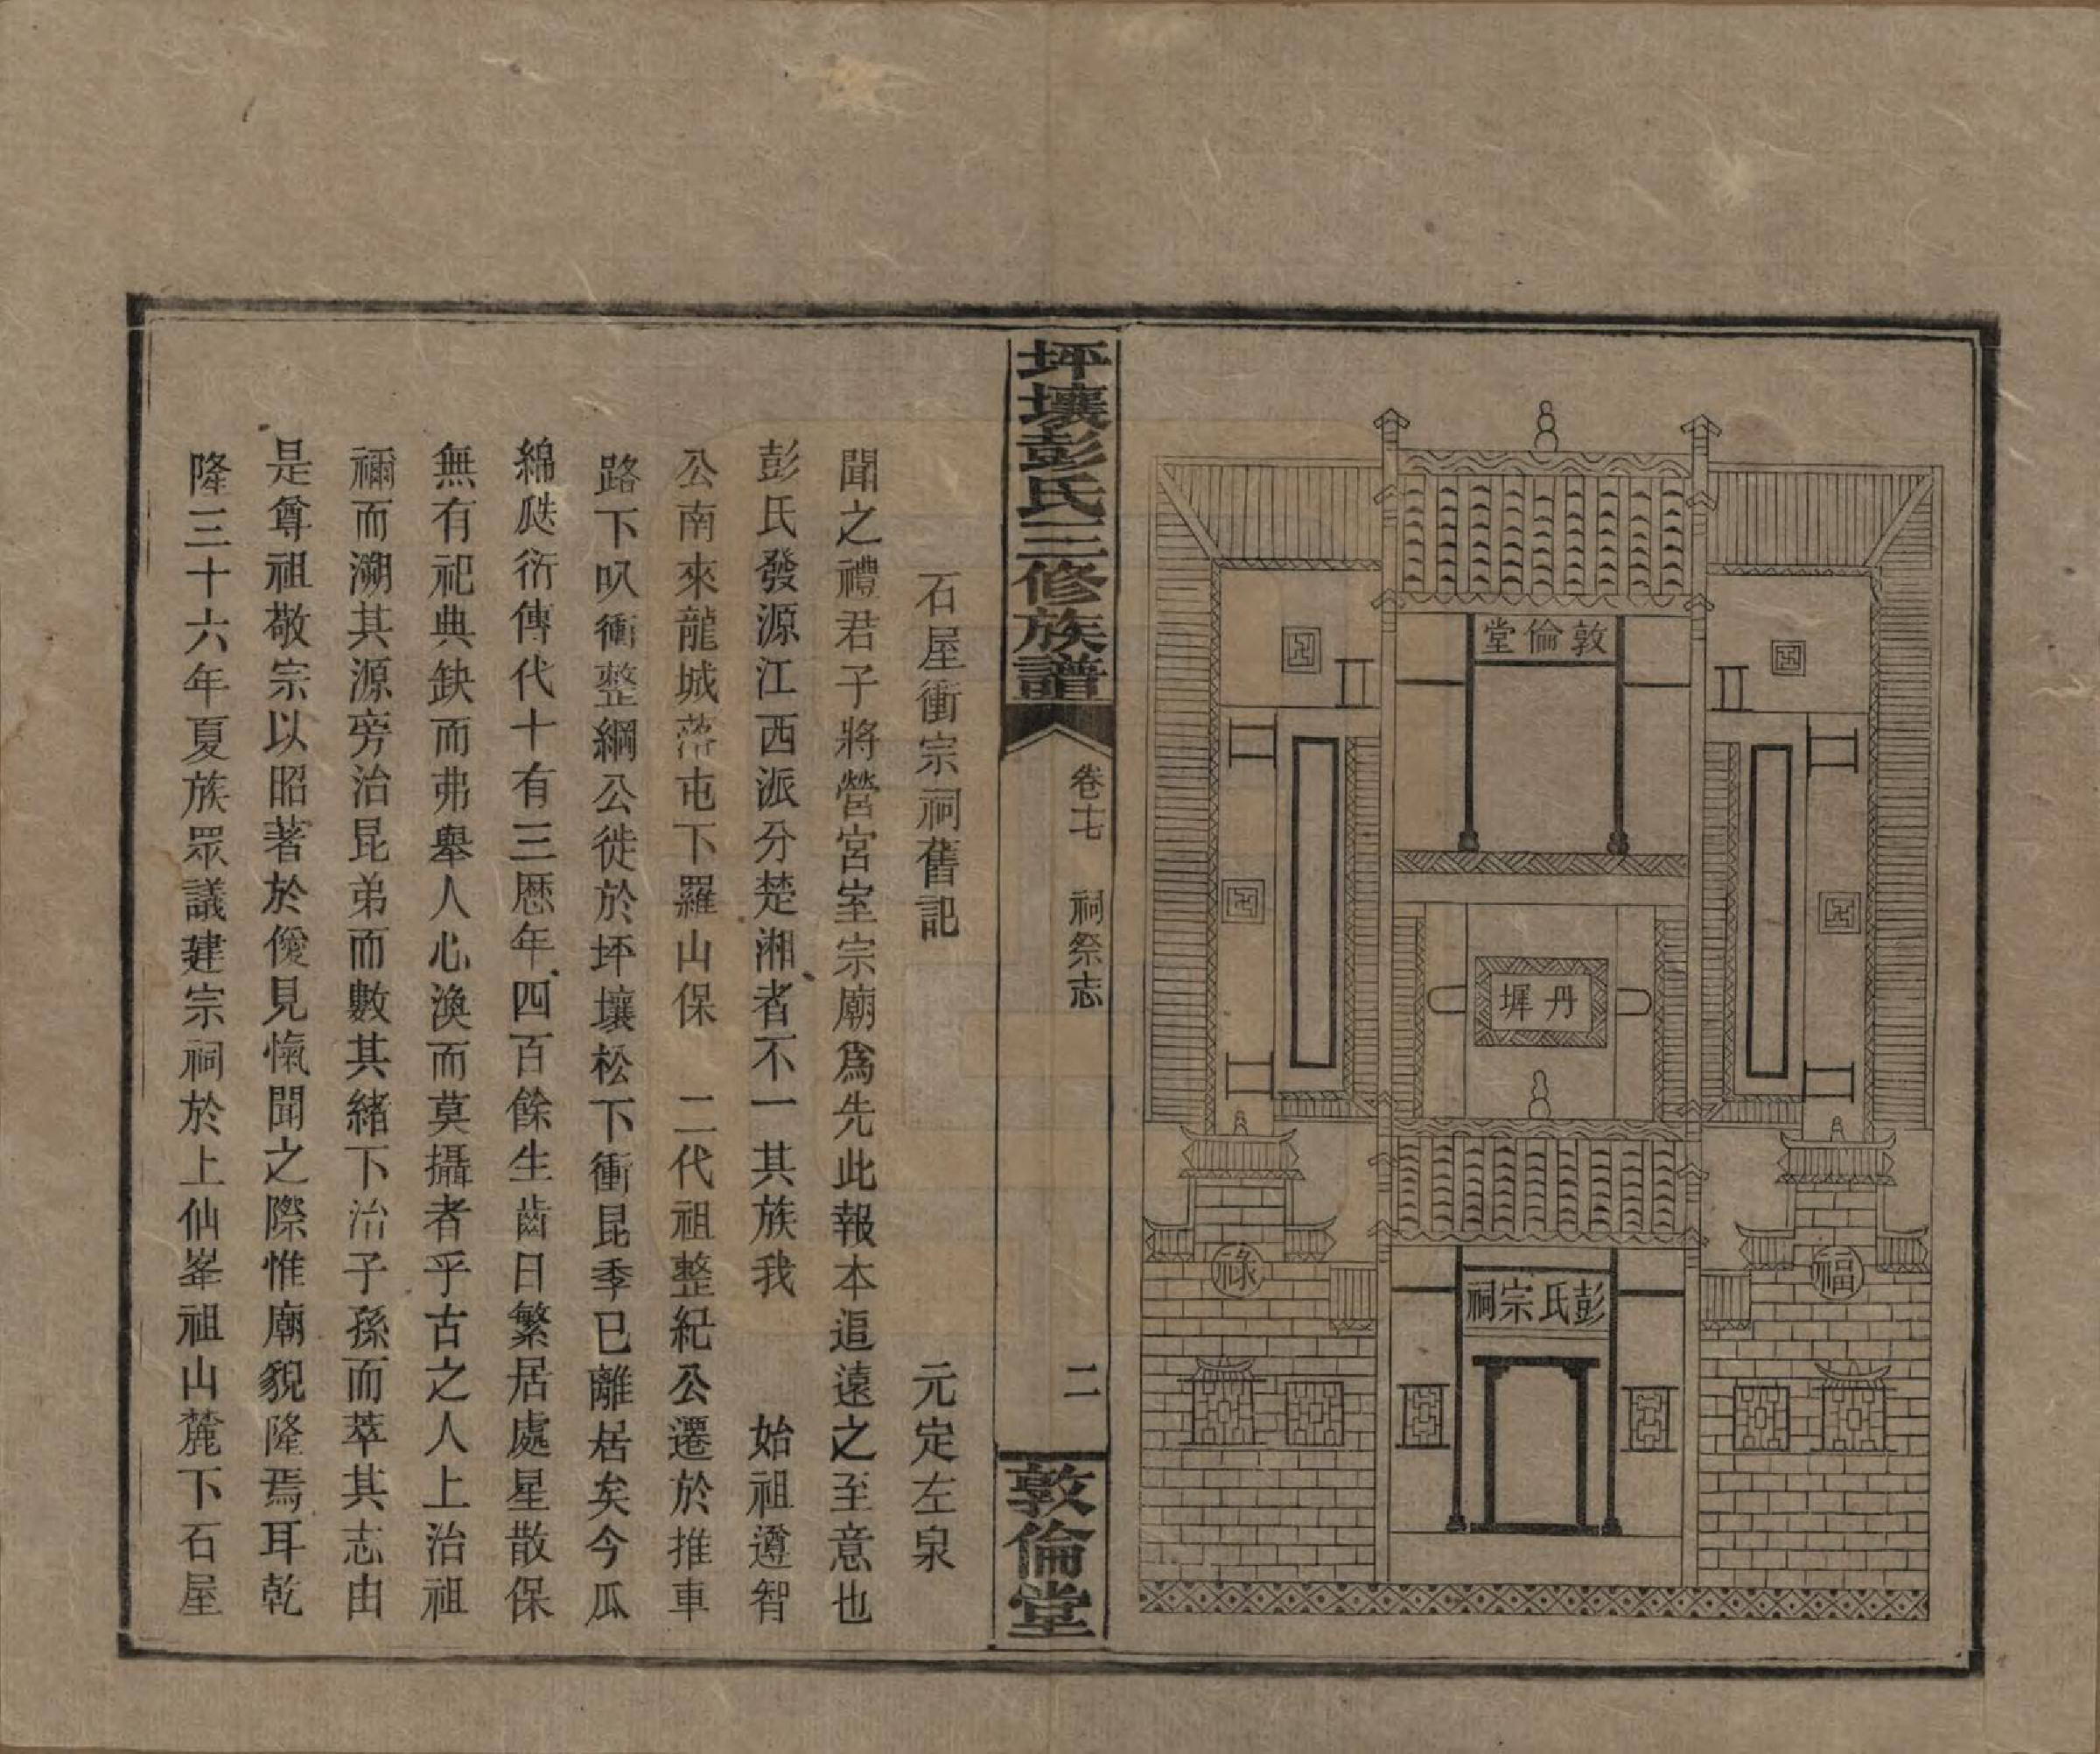 敦倫堂
丹墀
福
祿
彭氏宗祠
坪壤彭氏三修族譜
卷十七
祠祭志
二
敦倫堂
石屋衝宗祠舊記
元定左泉
聞之禮君子將營宮室宗廟爲先此報本追遠之至意也
彭氏發源江西派分楚湘者不一其族我 始祖遵智
公南來龍城落屯下羅山保 二代祖整紀公遷於推車
路下㕥衝整綱公徙於坪壤松下衝昆季已離居矣今瓜
綿瓞衍傳代十有三歷年四百餘生齒日繁居處星散保
無有祀典缺而弗舉人心渙而莫攝者乎古之人上治祖
禰而溯其源旁治昆弟而數其緒下治子孫而萃其志由
是尊祖敬宗以昭著於僾見愾聞之際惟廟貌隆焉耳乾
隆三十六年夏族眾議建宗祠於上仙峯祖山麓下石屋